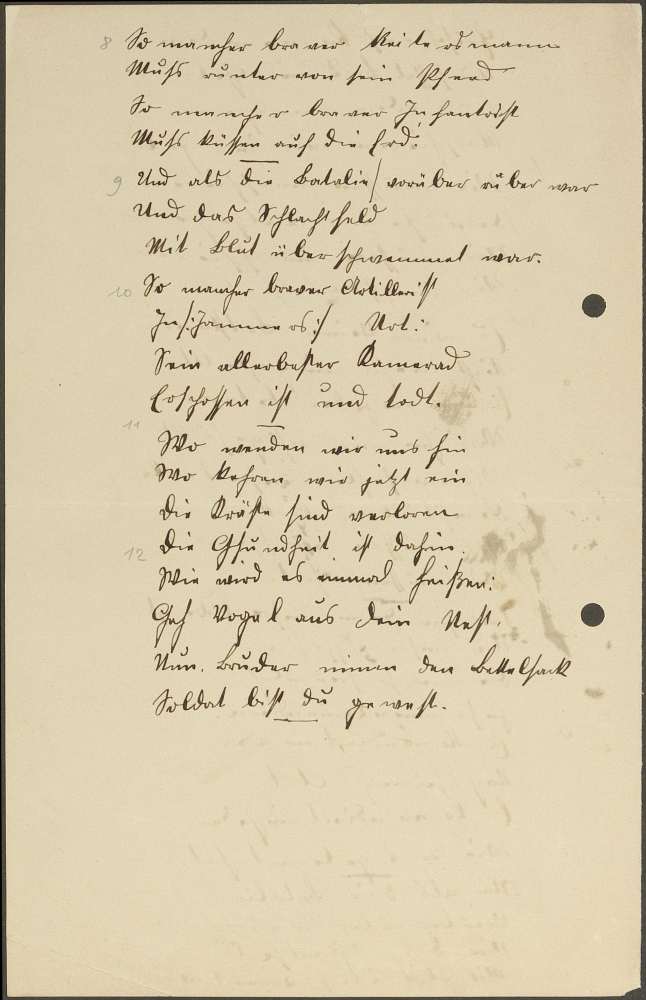 8 So mancher braver Reitersmann
Muß runter von sein Pferd
So mancher braver Infantrist
Muß küssen auf die Erd.
9 Und als die Batalie vorüber rüber war
Und das Schlachtfeld
Mit Blut überschwemmet war.
10 So mancher braver Artillerist
In /:Jammers:/ Not:
Sein allerbester Kamerad
Erschossen ist und todt.
11
Wo wenden wir uns hin
Wo kehren wir jetzt ein
Die Kräfte sind verloren
12 Die Gsundheit ist dahin.
Wie wird es einmal heißen:
Geh Vogel aus dein Nest.
Nun. Bruder nimm den Bettelsack
Soldat bist du gewest.